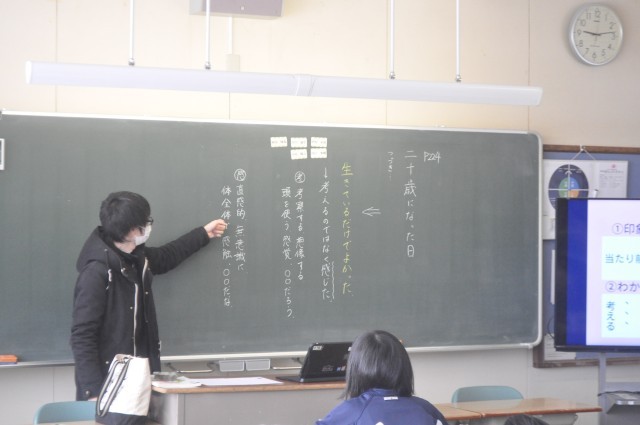 P224
二十歳になった日
つづき
生きているだけでよかった。
↓考えるのではなく感じた。
考 考察する 想像する
頭を使う 感覚、〇〇だろう、
感 直感的 無意識に
体全体で感触、〇〇だな
①印象
当たり前
②わか
考える